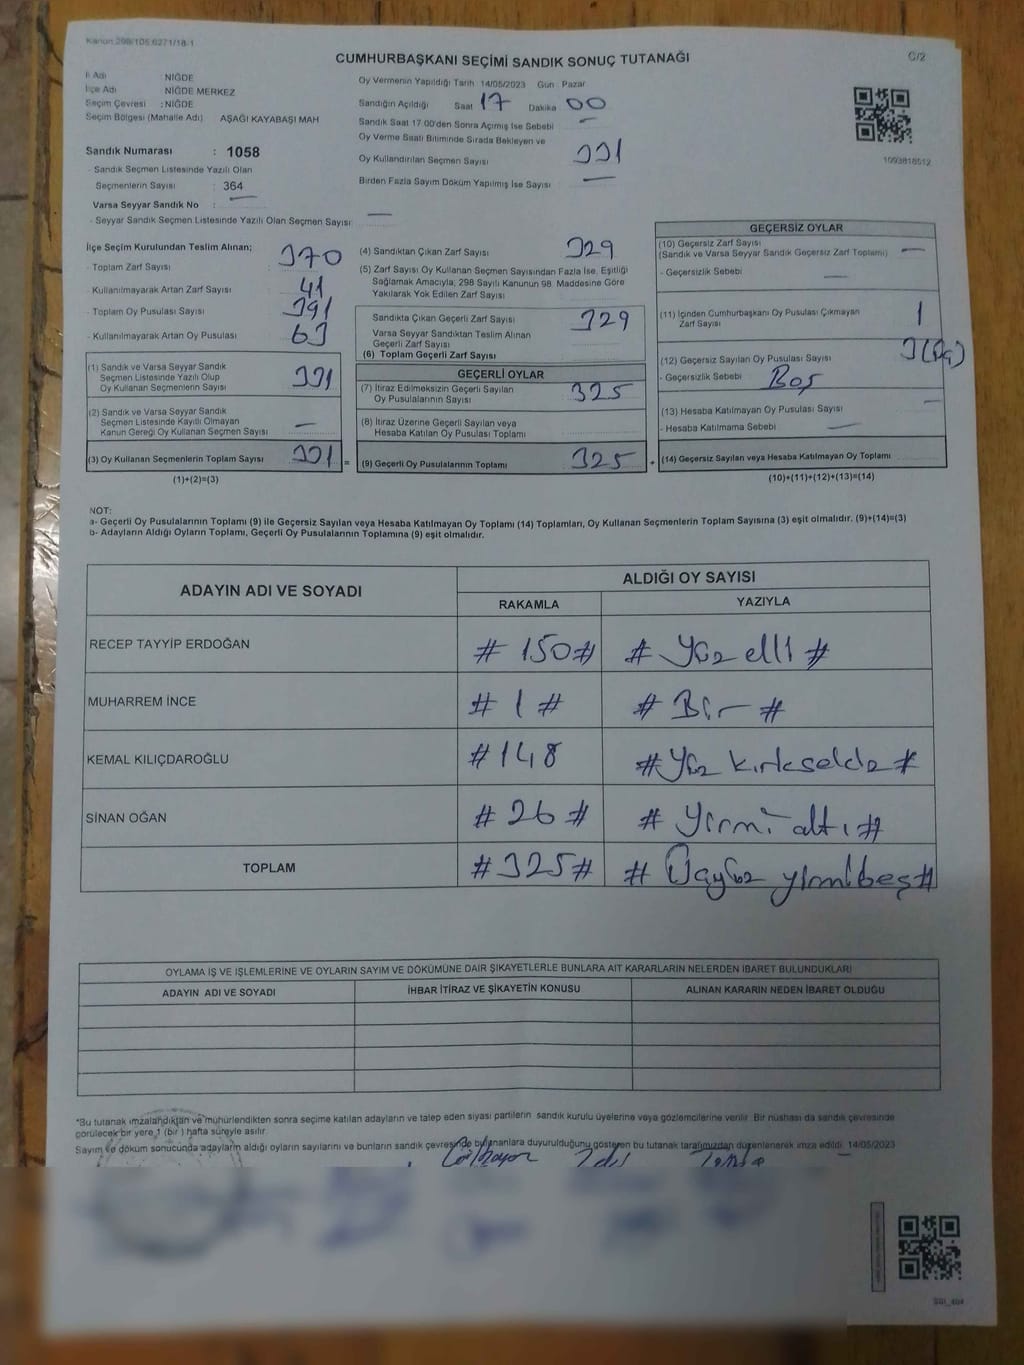 Kanun:298/105;6271/18-1
CUMHURBAŞKANI SEÇİMİ SANDIK SONUÇ TUTANAĞI
C/2
İl Adı NİĞDE
İlçe Adı NİĞDE MERKEZ
Seçim Çevresi : NİĞDE
Seçim Bölgesi (Mahalle Adı) AŞAĞI KAYABAŞI MAH
Sandık Numarası : 1058
- Sandık Seçmen Listesinde Yazılı Olan
Seçmenlerin Sayısı : 364
Varsa Seyyar Sandık No —
- Seyyar Sandık Seçmen Listesinde Yazılı Olan Seçmen Sayısı: —
Oy Vermenin Yapıldığı Tarih 14/05/2023 Gün Pazar
Sandığın Açıldığı Saat 17 Dakika 00
Sandık Saat 17.00'den Sonra Açımış İse Sebebi —
Oy Verme Saati Bitiminde Sırada Bekleyen ve
Oy Kullandırılan Seçmen Sayısı 331
Birden Fazla Sayım Döküm Yapılmış İse Sayısı —
1093818512
İlçe Seçim Kurulundan Teslim Alınan;
- Toplam Zarf Sayısı : 370
- Kullanılmayarak Artan Zarf Sayısı : 41
- Toplam Oy Pusulası Sayısı : 391
- Kullanılmayarak Artan Oy Pusulası : 63
(1) Sandık ve Varsa Seyyar Sandık
Seçmen Listesinde Yazılı Olup
Oy Kullanan Seçmenlerin Sayısı 331
(2) Sandık ve Varsa Seyyar Sandık
Seçmen Listesinde Kayıtlı Olmayan
Kanun Gereği Oy Kullanan Seçmen Sayısı —
(3) Oy Kullanan Seçmenlerin Toplam Sayısı 331 =
(1)+(2)=(3)
(4) Sandıktan Çıkan Zarf Sayısı 329
(5) Zarf Sayısı Oy Kullanan Seçmen Sayısından Fazla İse, Eşitliği
Sağlamak Amacıyla; 298 Sayılı Kanunun 98. Maddesine Göre
Yakılarak Yok Edilen Zarf Sayısı
Sandıkta Çıkan Geçerli Zarf Sayısı 329
Varsa Seyyar Sandıktan Teslim Alınan
Geçerli Zarf Sayısı
(6) Toplam Geçerli Zarf Sayısı
GEÇERLİ OYLAR
(7) İtiraz Edilmeksizin Geçerli Sayılan
Oy Pusulalarının Sayısı 325
(8) İtiraz Üzerine Geçerli Sayılan veya
Hesaba Katılan Oy Pusulası Toplamı
(9) Geçerli Oy Pusulalarının Toplamı 325 +
GEÇERSİZ OYLAR
(10) Geçersiz Zarf Sayısı
(Sandık ve Varsa Seyyar Sandık Geçersiz Zarf Toplamı) —
- Geçersizlik Sebebi —
(11) İçinden Cumhurbaşkanı Oy Pusulası Çıkmayan
Zarf Sayısı 1
(12) Geçersiz Sayılan Oy Pusulası Sayısı 3
- Geçersizlik Sebebi Boş
(13) Hesaba Katılmayan Oy Pusulası Sayısı —
- Hesaba Katılmama Sebebi —
(14) Geçersiz Sayılan veya Hesaba Katılmayan Oy Toplamı
(10)+(11)+(12)+(13)=(14)
NOT:
a- Geçerli Oy Pusulalarının Toplamı (9) ile Geçersiz Sayılan veya Hesaba Katılmayan Oy Toplamı (14) Toplamları, Oy Kullanan Seçmenlerin Toplam Sayısına (3) eşit olmalıdır. (9)+(14)=(3)
b- Adayların Aldığı Oyların Toplamı, Geçerli Oy Pusulalarının Toplamına (9) eşit olmalıdır.
ADAYIN ADI VE SOYADI
ALDIĞI OY SAYISI
RAKAMLA YAZIYLA
RECEP TAYYİP ERDOĞAN # 150 # # Yüz elli #
MUHARREM İNCE # 1 # # Bir #
KEMAL KILIÇDAROĞLU # 148 # Yüz kırksekiz #
SİNAN OĞAN # 26 # # Yirmi altı #
TOPLAM # 325 # # Üçyüz yirmibeş #
OYLAMA İŞ VE İŞLEMLERİNE VE OYLARIN SAYIM VE DÖKÜMÜNE DAİR ŞİKAYETLERLE BUNLARA AİT KARARLARIN NELERDEN İBARET BULUNDUKLARI
ADAYIN ADI VE SOYADI
İHBAR İTİRAZ VE ŞİKAYETİN KONUSU
ALINAN KARARIN NEDEN İBARET OLDUĞU
*Bu tutanak imzalandıktan ve mühürlendikten sonra seçime katılan adayların ve talep eden siyasi partilerin sandık kurulu üyelerine veya gözlemcilerine verilir. Bir nüshası da sandık çevresinde
görülecek bir yere 1 (bir) hafta süreyle asılır.
Sayım ve döküm sonucunda adayların aldığı oyların sayılarını ve bunların sandık çevresinde bulunanlara duyurulduğunu gösteren bu tutanak tarafımızdan düzenlenerek imza edildi. 14/05/2023